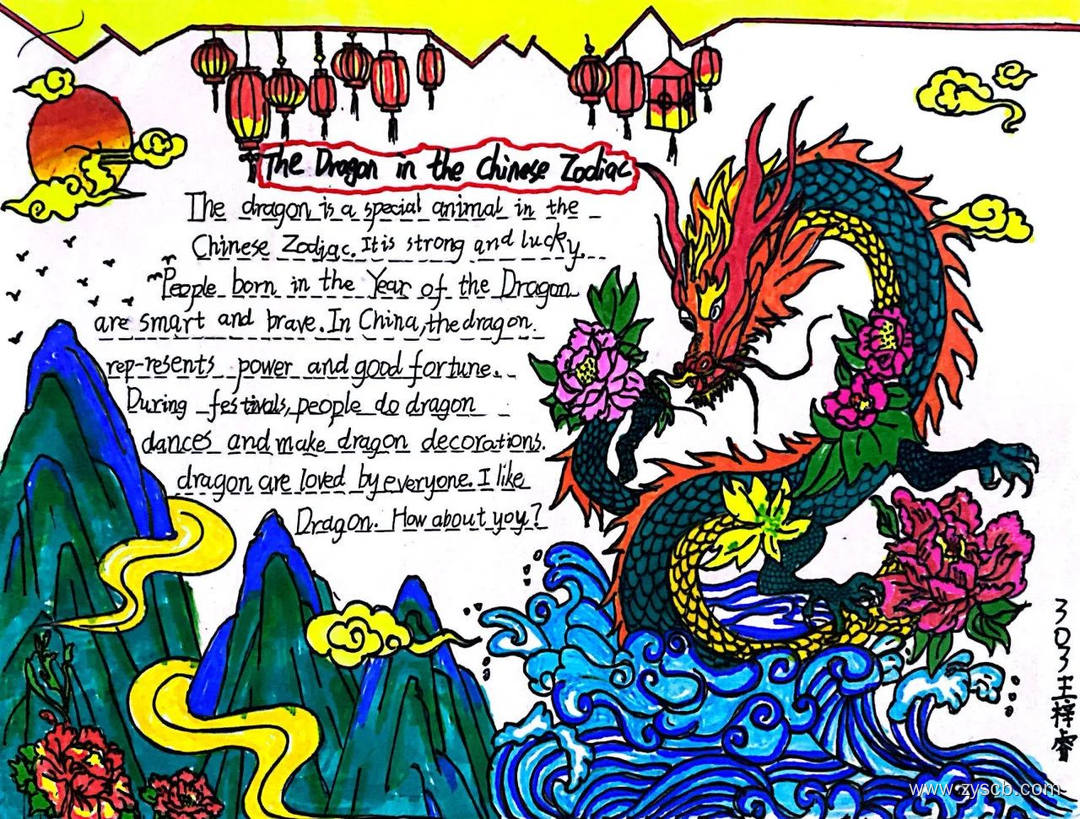 The Dragon in the Chinese Zodiac
The dragon is a special animal in the
Chinese Zodiac. It is strong and lucky.
People born in the Year of the Dragon
are smart and brave. In China, the dragon.
rep-resents power and good fortune.
During festivals, people do dragon
dances and make dragon decorations.
dragon are loved by everyone. I like
Dragon. How about yoy?
303王梓睿
www.zyscb.com